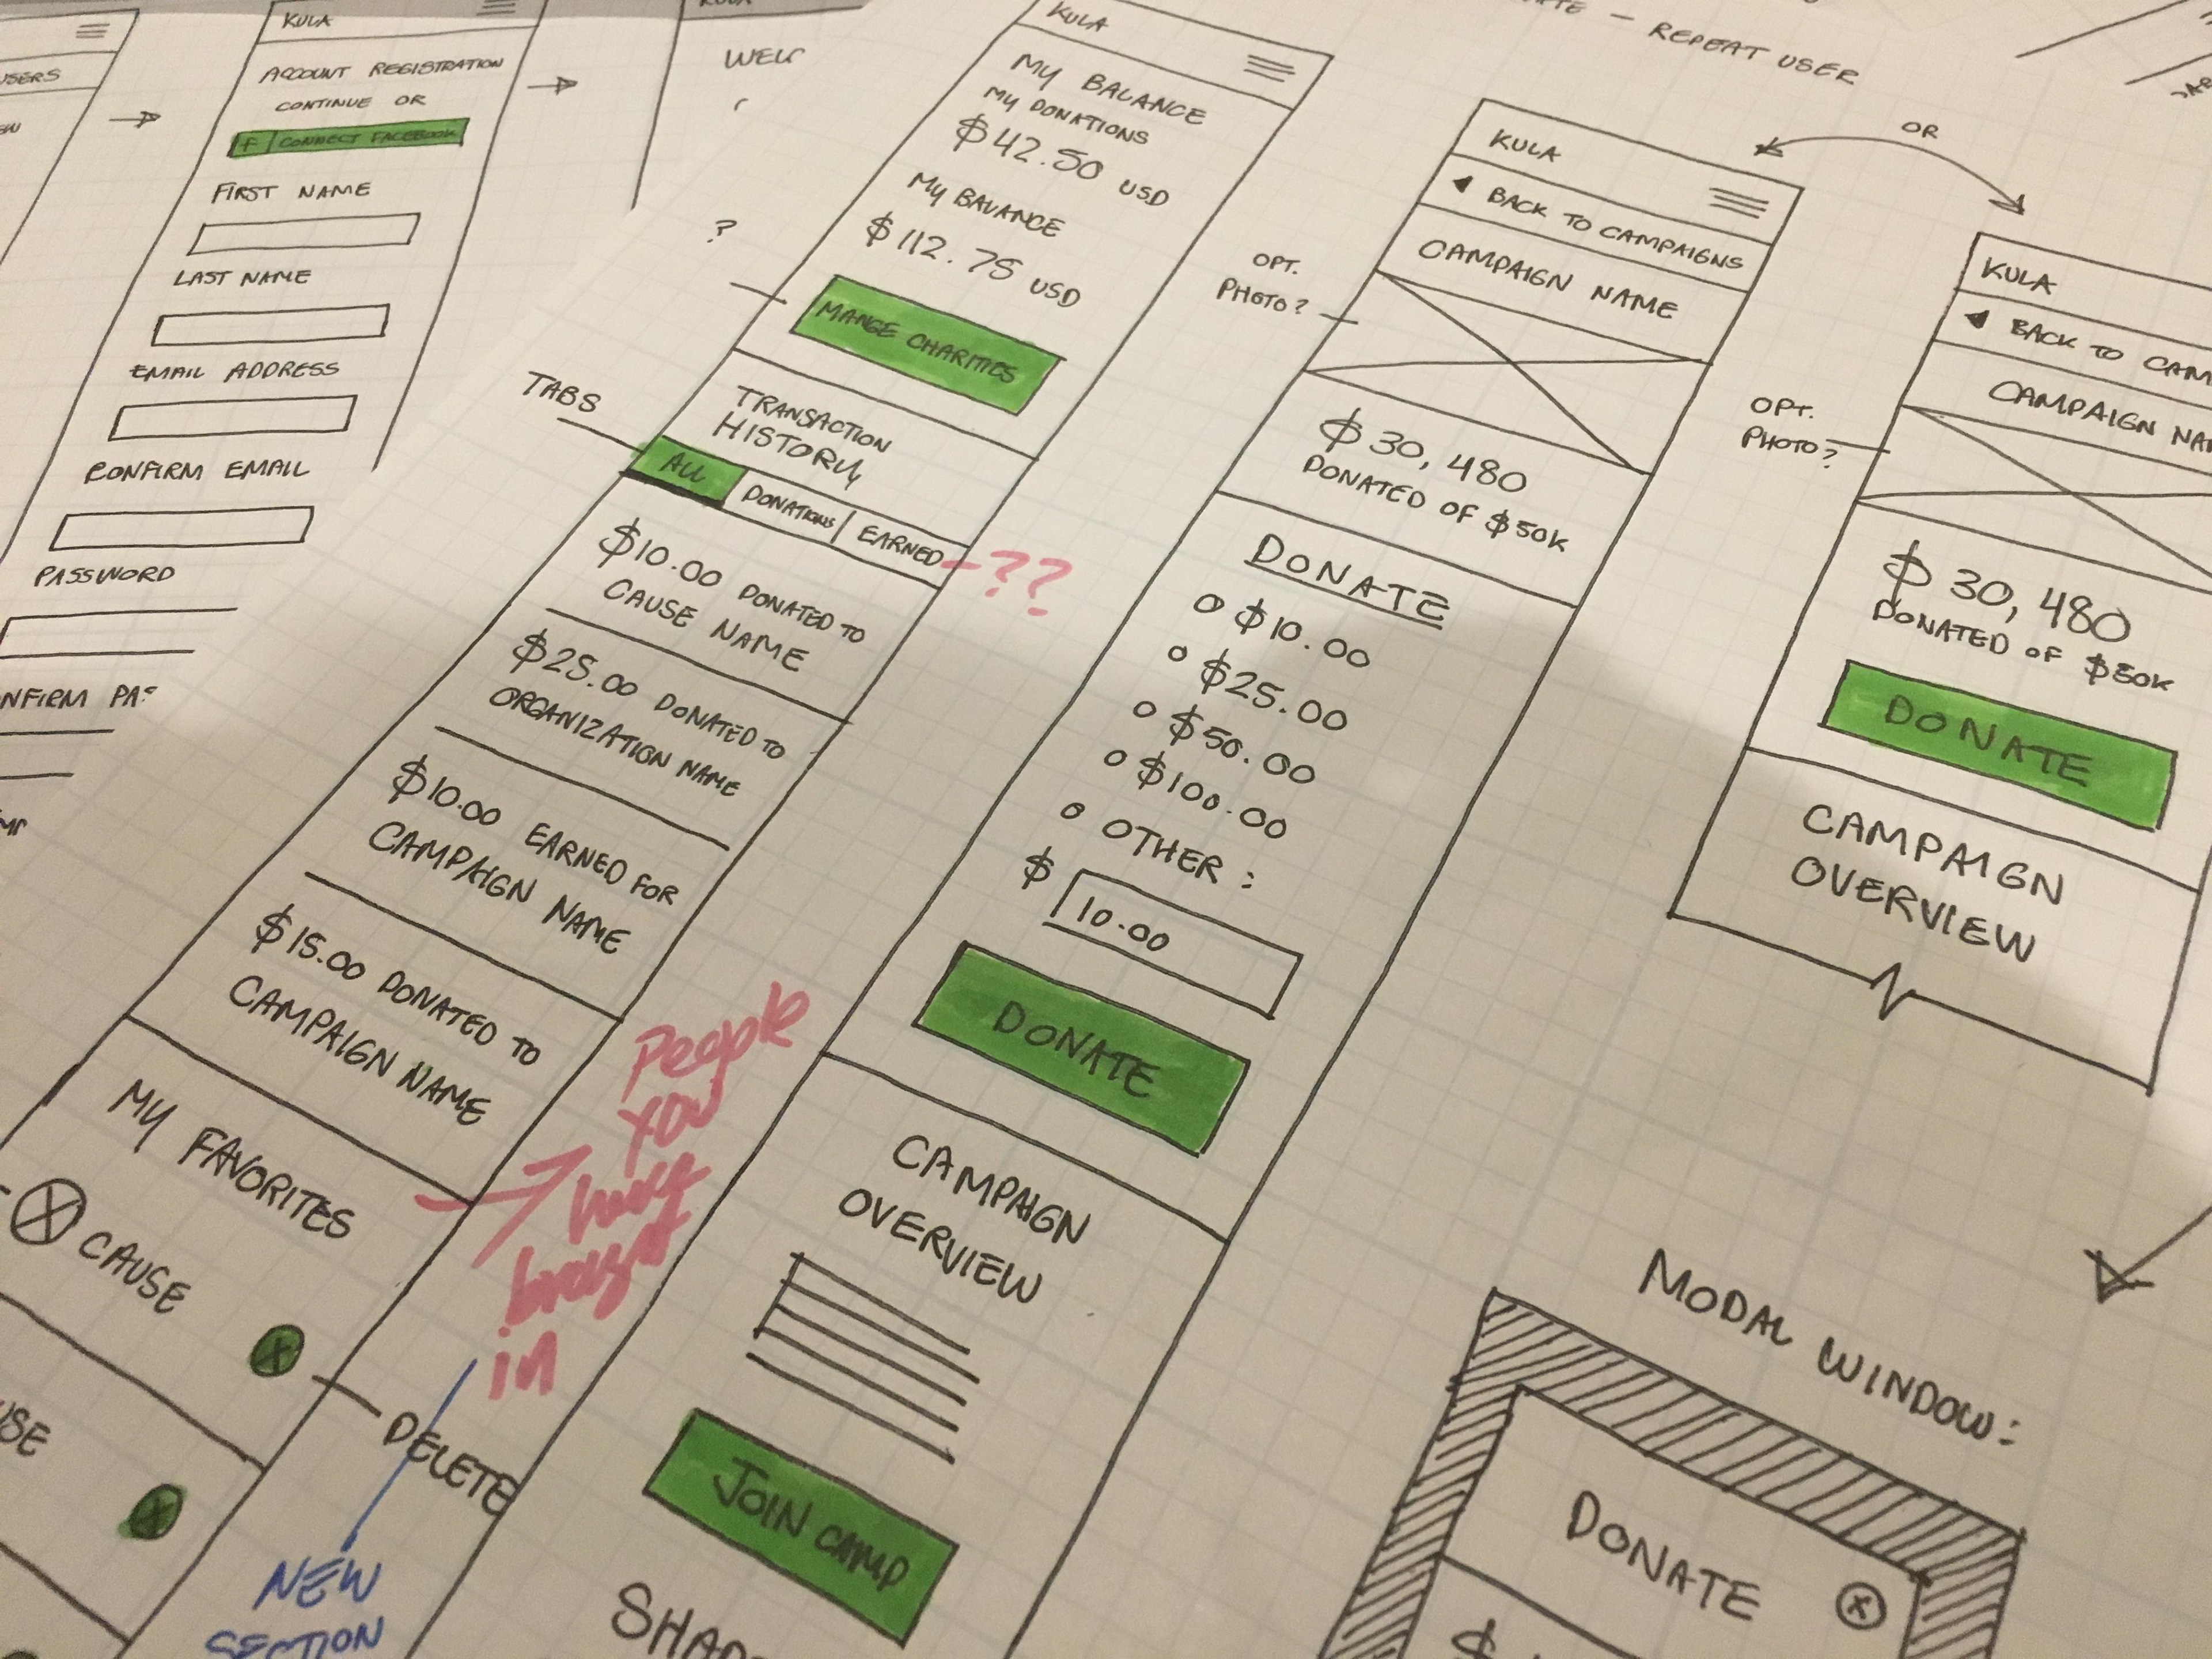 USERS
KULA
ACCOUNT REGISTRATION
CONTINUE OR
F CONNECT FACEBOOK
FIRST NAME
LAST NAME
EMAIL ADDRESS
CONFIRM EMAIL
PASSWORD
NFIRM PAS
WELC
?
TABS
KULA
MY BALANCE
MY DONATIONS
$42.50 USD
MY BALANCE
$112.75 USD
MANGE CHARITIES
TRANSACTION
HISTORY
ALL DONATIONS EARNED
-??
$10.00 DONATED TO
CAUSE NAME
$25.00 DONATED TO
ORGANIZATION NAME
$10.00 EARNED FOR
CAMPAIGN NAME
$15.00 DONATED TO
CAMPAIGN NAME
MY FAVORITES
CAUSE
X
USE
X
DELETE
People
you
have
brought
in
NEW
SECTION
— REPEAT USER
OR
OPT.
PHOTO?
KULA
◄ BACK TO CAMPAIGNS
CAMPAIGN NAME
$30,480
DONATED OF $50K
DONATE
O $10.00
O $25.00
O $50.00
O $100.00
O OTHER:
$ 10.00
DONATE
CAMPAIGN
OVERVIEW
JOIN CAMP
SHAR
OPT.
PHOTO?
KULA
◄ BACK TO CAM
CAMPAIGN NAM
$30,480
DONATED OF $50K
DONATE
CAMPAIGN
OVERVIEW
MODAL WINDOW:
DONATE X
$